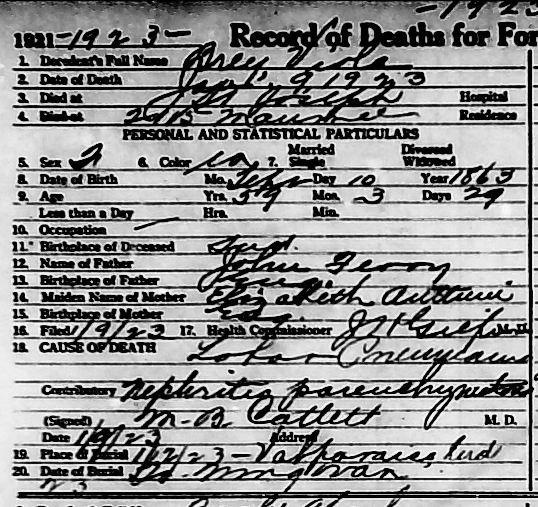 -1923
1921-1923- Record of Deaths for For
1. Decedent's Full Name Frey Viola
2. Date of Death Jan. 9 1923
3. Died at St Joseph Hospital
4. Died at Maumee Residence
PERSONAL AND STATISTICAL PARTICULARS
5. Sex F 6. Color W 7. Married Single Divorced Widowed
8. Date of Birth Mo. Day 10 Year 1863
9. Age Yrs. 59 Mos. 3 Days 29
Less than a Day Hrs. Min.
10. Occupation —
11. Birthplace of Deceased Ind.
12. Name of Father John
13. Birthplace of Father
14. Maiden Name of Mother Elizabeth
15. Birthplace of Mother
16. Filed 1/9/23 17. Health Commissioner M. D.
18. CAUSE OF DEATH Lobar Pneumonia
Contributory Nephritis parenchymatous
(Signed) M. B. Catlett M. D.
Date 1/9/23 Address
19. Place of Burial 1/12/23 - Valparaiso, Ind
20. Date of Burial
23